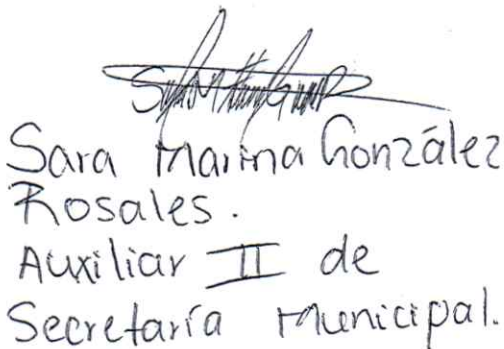 Sara Marina González
Rosales.
Auxiliar II de
Secretaría Municipal.